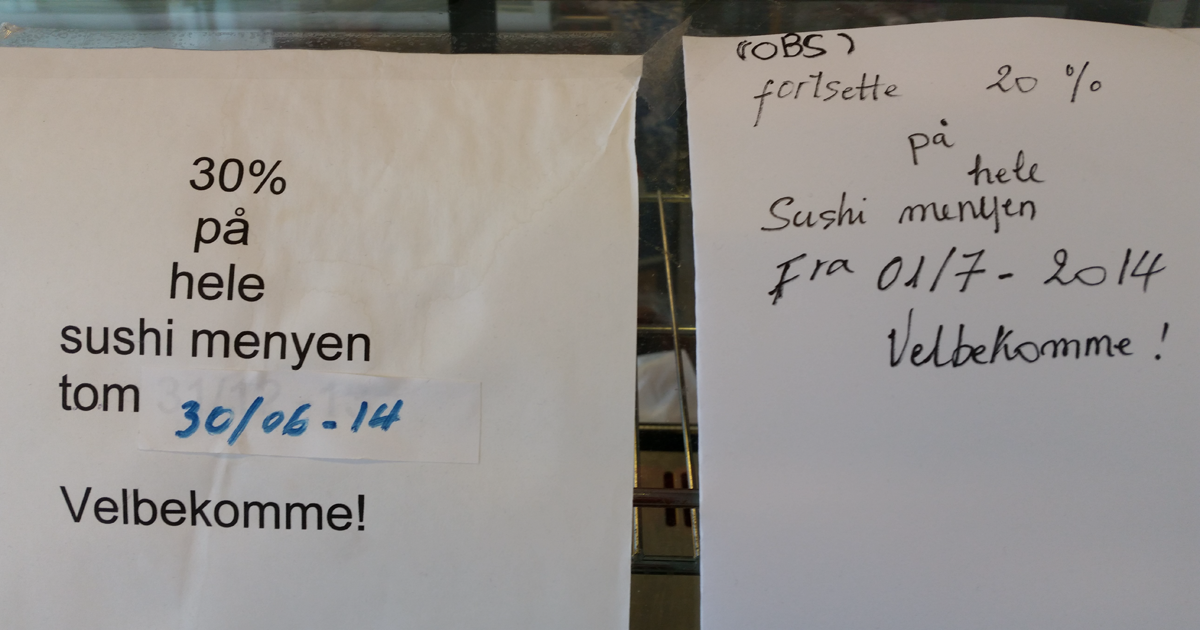 30%
på
hele
sushi menyen
tom 30/06-14
Velbekomme!
(OBS)
fortsette 20 %
på
hele
Sushi menyen
Fra 01/7-2014
Velbekomme!